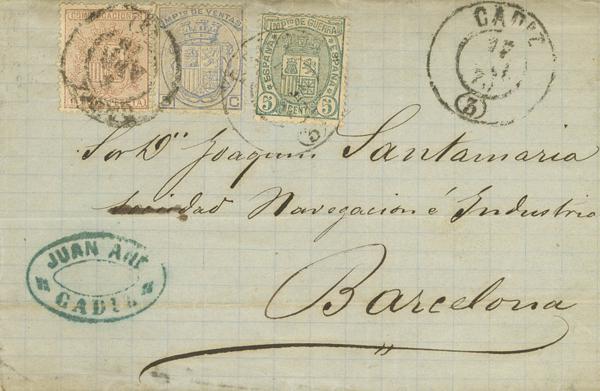 COMUNICACIONES
IMPTO DE VENTAS
IMPTO DE GUERRA
ESPAÑA
ESPAÑA
5 CENT 5
CADIZ
17
(3)
Sor Dn Joaquin Santamaria
Sociedad Navegacion é Industria
Barcelona
JUAN
CADIZ